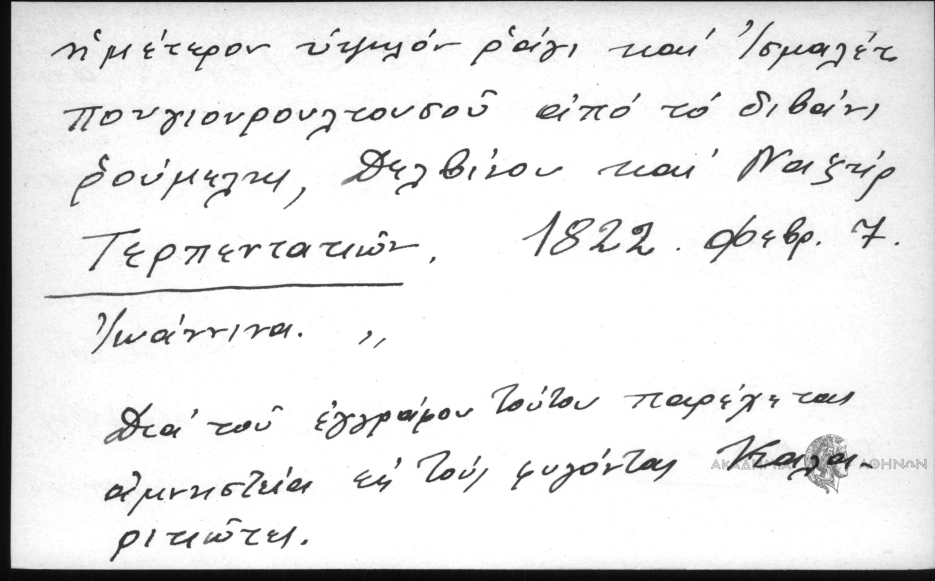 ἡμέτερον ὑψηλόν ῥάγι καί Ἰσμαλέτ
πουγιουρουλτουσοῦ ἀπό τό διβάνι
ῥούμελης, Δελβίνου και Ναζήρ
Τερπεντατιῶν, 1822. Φεβρ. 7.
Ἰωάννινα. ,,
Διά τοῦ ἐγγράφου τούτου παρέχεται
ἀμνηστεία εἰς τούς φυγόντας Καλα-
ριτιῶτες.
ΑΚΑΔΗΜΙΑ ΑΘΗΝΩΝ